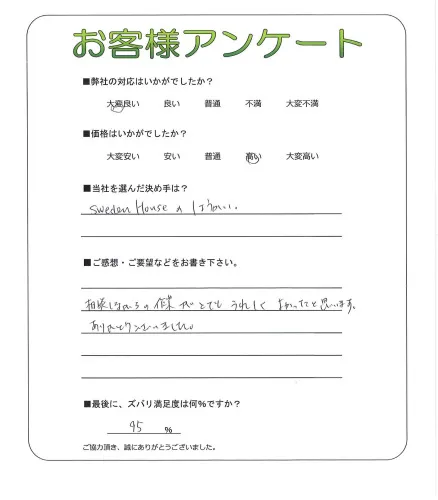 お客様アンケート
■弊社の対応はいかがでしたか？
大変良い 良い 普通 不満 大変不満
■価格はいかがでしたか？
大変安い 安い 普通 高い 大変高い
■当社を選んだ決め手は？
Sweden House の しょうかい。
■ご感想・ご要望などをお書き下さい。
相談しながらの作業がとてもうれしくよかったと思います。
ありがとうございました。
■最後に、ズバリ満足度は何％ですか？
95 %
ご協力頂き、誠にありがとうございました。